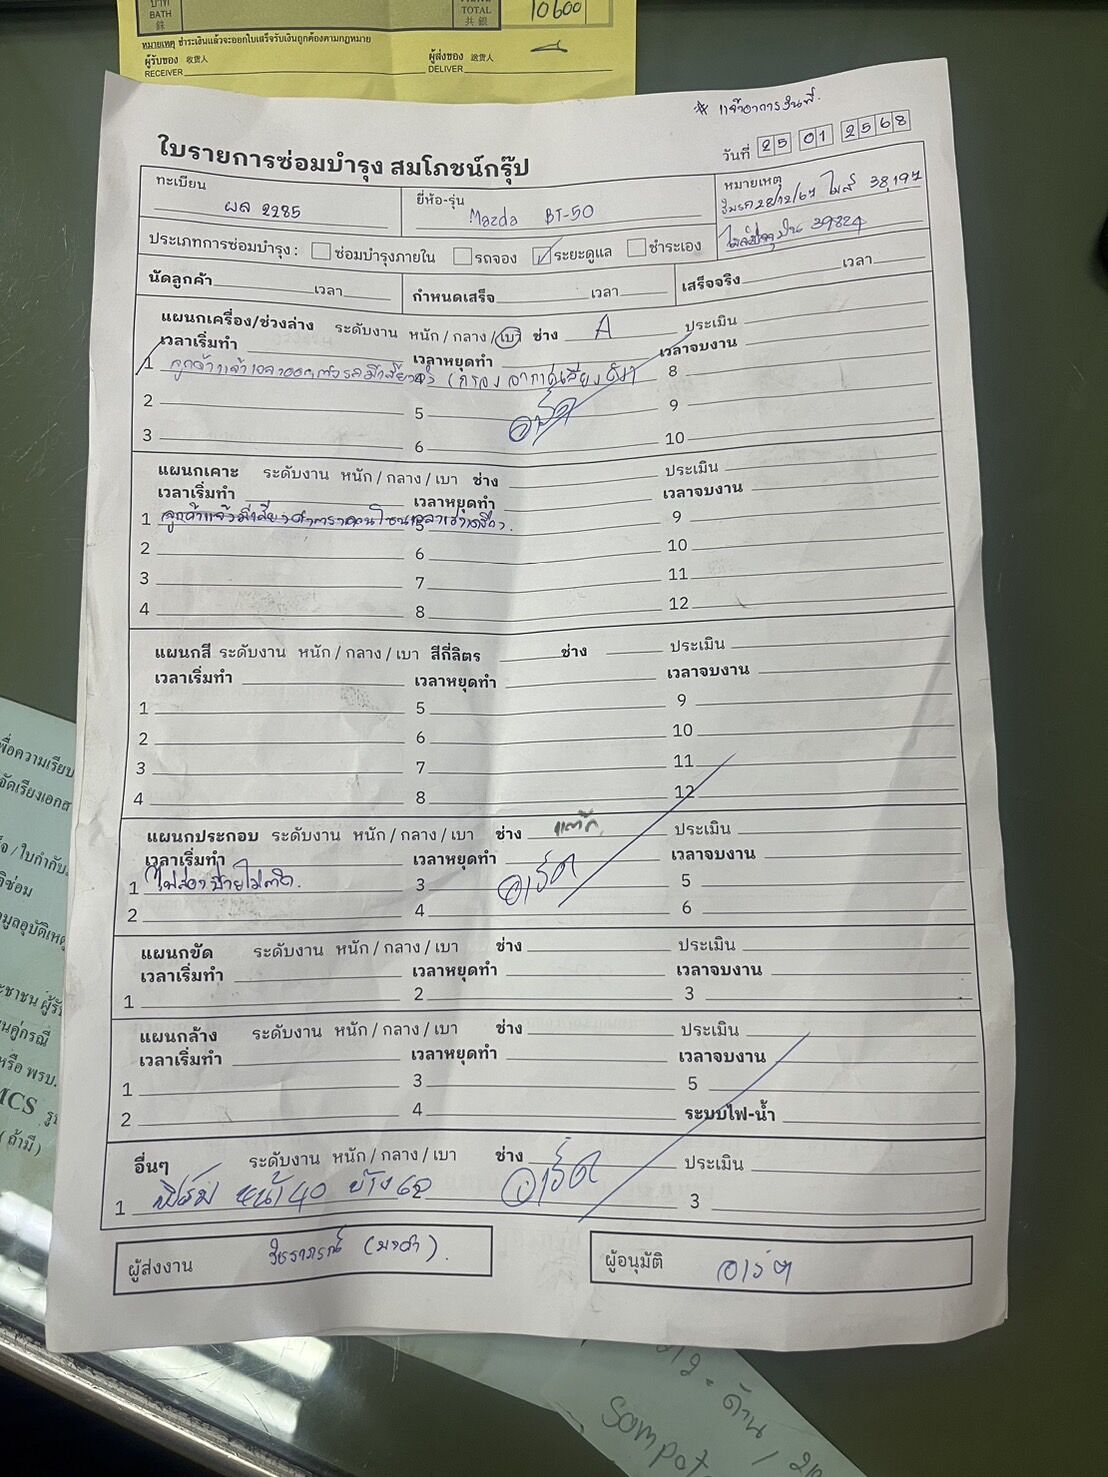 บาท
BATH
TOTAL
共 銀
10600
หมายเหตุ ชำระเงินแล้วจะออกใบเสร็จรับเงินถูกต้องตามกฎหมาย
ผู้รับของ 收貨人
RECEIVER
ผู้ส่งของ 送貨人
DELIVER
* แจ้งอาการวันที่
ใบรายการซ่อมบำรุง สมโภชน์กรุ๊ป
วันที่ 25 01 2568
ทะเบียน ผล 2285
ยี่ห้อ-รุ่น Mazda BT-50
หมายเหตุ
28/12/67 ไมล์ 38,197
39824
ประเภทการซ่อมบำรุง : ซ่อมบำรุงภายใน รถจอง ระยะดูแล ชำระเอง
นัดลูกค้า เวลา กำหนดเสร็จ เวลา เสร็จจริง เวลา
แผนกเครื่อง/ช่วงล่าง ระดับงาน หนัก / กลาง / เบา ช่าง A ประเมิน
เวลาเริ่มทำ เวลาหยุดทำ เวลาจบงาน
1 ลูกค้าแจ้ง 8
2 5 9
3 6 10
แผนกเคาะ ระดับงาน หนัก / กลาง / เบา ช่าง ประเมิน
เวลาเริ่มทำ เวลาหยุดทำ เวลาจบงาน
1 ลูกค้าแจ้งมีเสียง 9
2 6 10
3 7 11
4 8 12
แผนกสี ระดับงาน หนัก / กลาง / เบา สีกี่ลิตร ช่าง ประเมิน
เวลาเริ่มทำ เวลาหยุดทำ เวลาจบงาน
1 5 9
2 6 10
3 7 11
4 8 12
แผนกประกอบ ระดับงาน หนัก / กลาง / เบา ช่าง ประเมิน
เวลาเริ่มทำ เวลาหยุดทำ เวลาจบงาน
1 ไฟส่องป้ายไม่ติด. 3 อาร์ต 5
2 4 6
แผนกขัด ระดับงาน หนัก / กลาง / เบา ช่าง ประเมิน
เวลาเริ่มทำ เวลาหยุดทำ เวลาจบงาน
1 2 3
แผนกล้าง ระดับงาน หนัก / กลาง / เบา ช่าง ประเมิน
เวลาเริ่มทำ เวลาหยุดทำ เวลาจบงาน
1 3 5
2 4 ระบบไฟ-น้ำ
อื่นๆ ระดับงาน หนัก / กลาง / เบา ช่าง อาร์ต ประเมิน
1 ฟิล์ม หน้า 40 ข้าง 60 3
ผู้ส่งงาน
ผู้อนุมัติ อาร์ต
พื่อความเรียบ
จัดเรียงเอกส
/ ใบกำกับ
ซ่อม
มูลอุบัติเหตุ
ะชาชน ผู้รับ
นคู่กรณี
หรือ พรบ.
ICS รู
( ถ้ามี )
ด้าน
Sompot